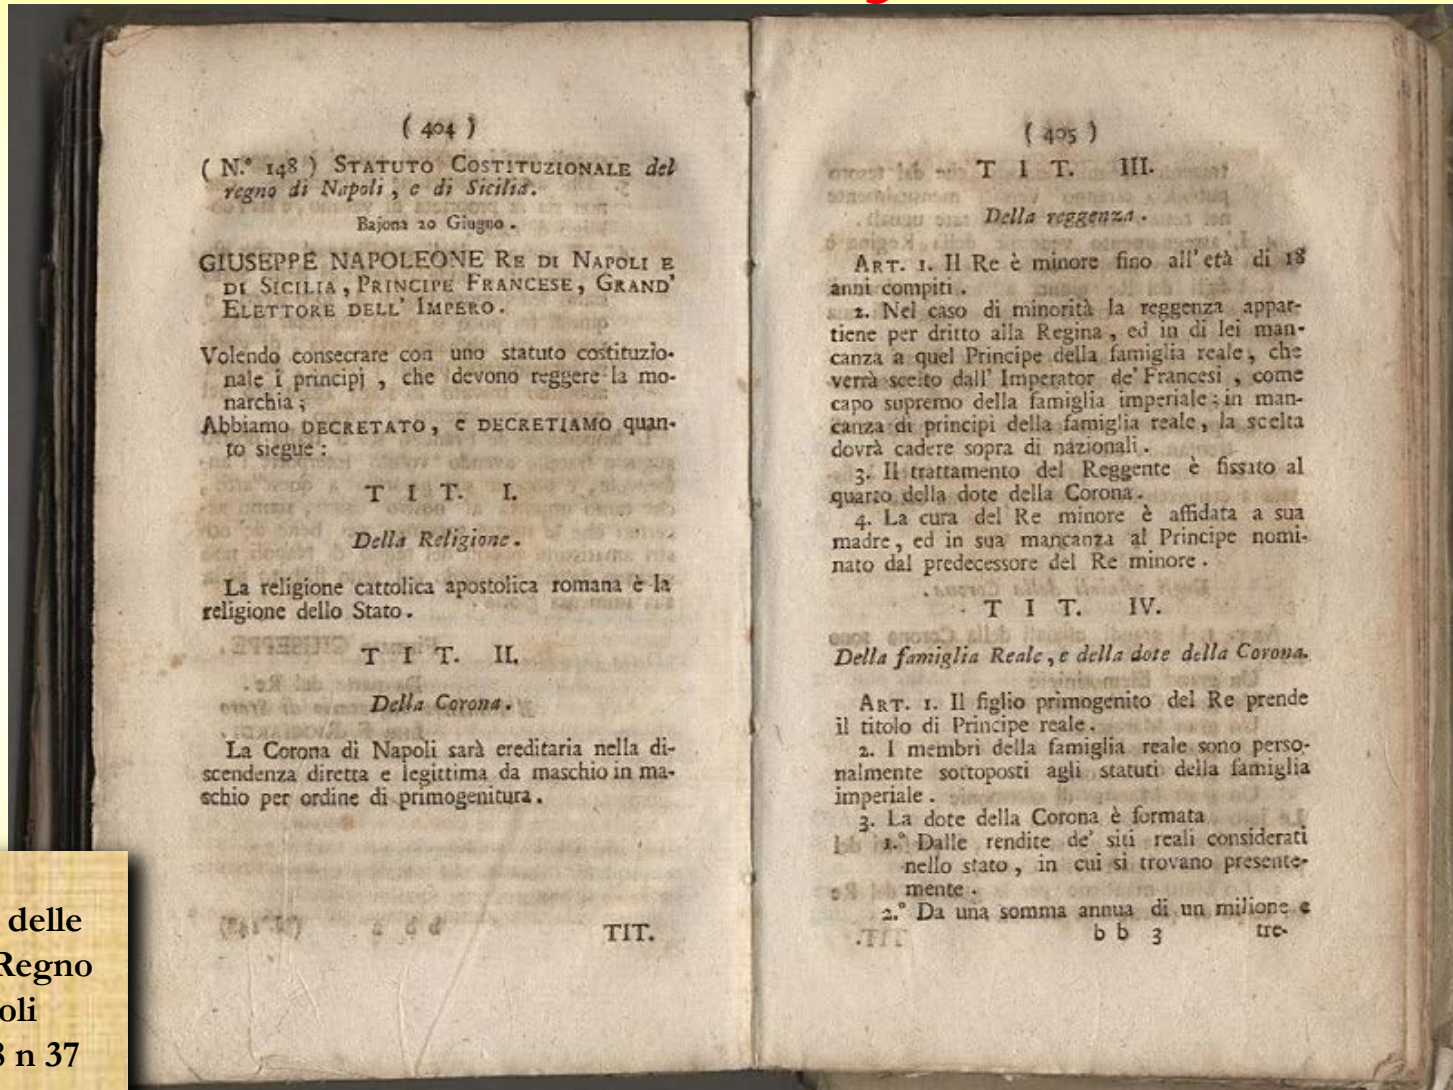 ( 404 )
( N.° 148 ) STATUTO COSTITUZIONALE del
regno di Napoli , e di Sicilia.
Bajona 20 Giugno .
GIUSEPPE NAPOLEONE RE DI NAPOLI E
DI SICILIA , PRINCIPE FRANCESE , GRAND'
ELETTORE DELL' IMPERO .
Volendo consecrare con uno statuto costituzio-
nale i principj , che devono reggere la mo-
narchia ;
Abbiamo DECRETATO , e DECRETIAMO quan-
to siegue :
T I T. I.
Della Religione .
La religione cattolica apostolica romana è la
religione dello Stato .
T I T. II.
Della Corona .
La Corona di Napoli sarà ereditaria nella di-
scendenza diretta e legittima da maschio in ma-
schio per ordine di primogenitura .
TIT.
( 405 )
T I T. III.
Della reggenza .
ART. 1. Il Re è minore fino all' età di 18
anni compiti .
2. Nel caso di minorità la reggenza appar-
tiene per dritto alla Regina , ed in di lei man-
canza a quel Principe della famiglia reale , che
verrà scelto dall' Imperator de' Francesi , come
capo supremo della famiglia imperiale ; in man-
canza di principi della famiglia reale , la scelta
dovrà cadere sopra di nazionali .
3. Il trattamento del Reggente è fissato al
quarto della dote della Corona .
4. La cura del Re minore è affidata a sua
madre , ed in sua mancanza al Principe nomi-
nato dal predecessore del Re minore .
T I T. IV.
Della famiglia Reale , e della dote della Corona.
ART. 1. Il figlio primogenito del Re prende
il titolo di Principe reale .
2. I membri della famiglia reale sono perso-
nalmente sottoposti agli statuti della famiglia
imperiale .
3. La dote della Corona è formata
1.° Dalle rendite de' siti reali considerati
nello stato , in cui si trovano presente-
mente .
2.° Da una somma annua di un milione e
b b 3 tre-
delle
Regno
oli
n 37